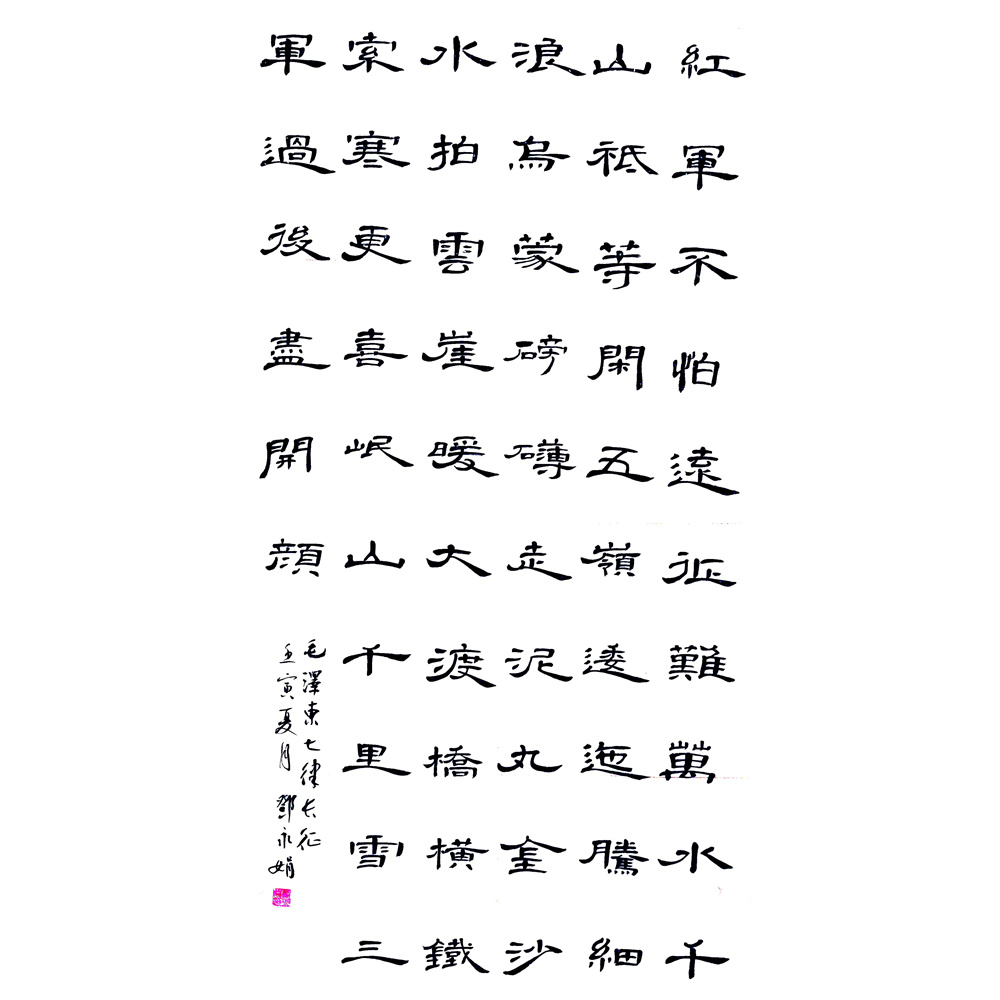 紅軍不怕遠征難萬水千
山祗等閑五嶺逶迤騰細
浪烏蒙磅礴走泥丸金沙
水拍雲崖暖大渡橋橫鐵
索寒更喜岷山千里雪三
軍過後盡開顏
毛澤東七律長征
壬寅夏月 鄧永娟